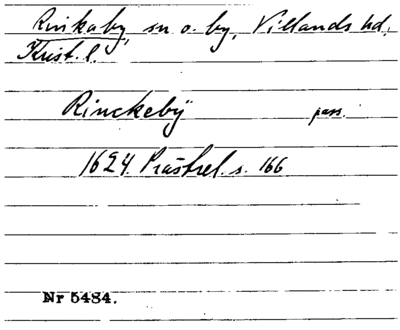 Rinkaby, sn o. by, Villands hd,
Krist. l.
Rinckebÿ pass.
1624. Prästrel. s. 166
Nr 5484.